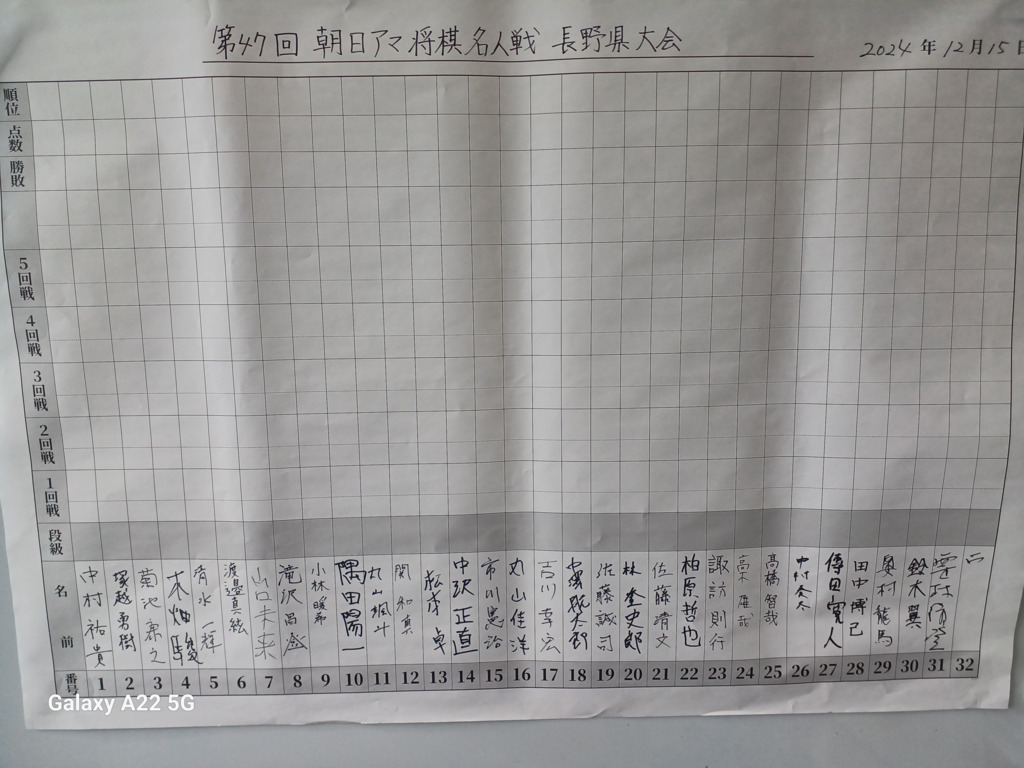 第47回 朝日アマ将棋名人戦 長野県大会
2024年12月15日
順位
点数
勝敗
5回戦
4回戦
3回戦
2回戦
1回戦
段級
名前
中村祐貴
塚越勇樹
菊池康之
木畑駿
青水一輝
渡邉真絃
山口未来
滝沢昌盛
小林暖希
隅田陽一
丸山楓斗
関和真
卓
中沢正直
市川恵治
丸山佳洋
吉川幸宏
佐藤誠司
林奎史郎
佐藤靖文
柏原哲也
諏訪則行
高木雄哉
高橋智哉
中村冬冬
傳田寛人
田中博己
奥村龍馬
鈴木翼
番号 1 2 3 4 5 6 7 8 9 10 11 12 13 14 15 16 17 18 19 20 21 22 23 24 25 26 27 28 29 30 31 32
Galaxy A22 5G